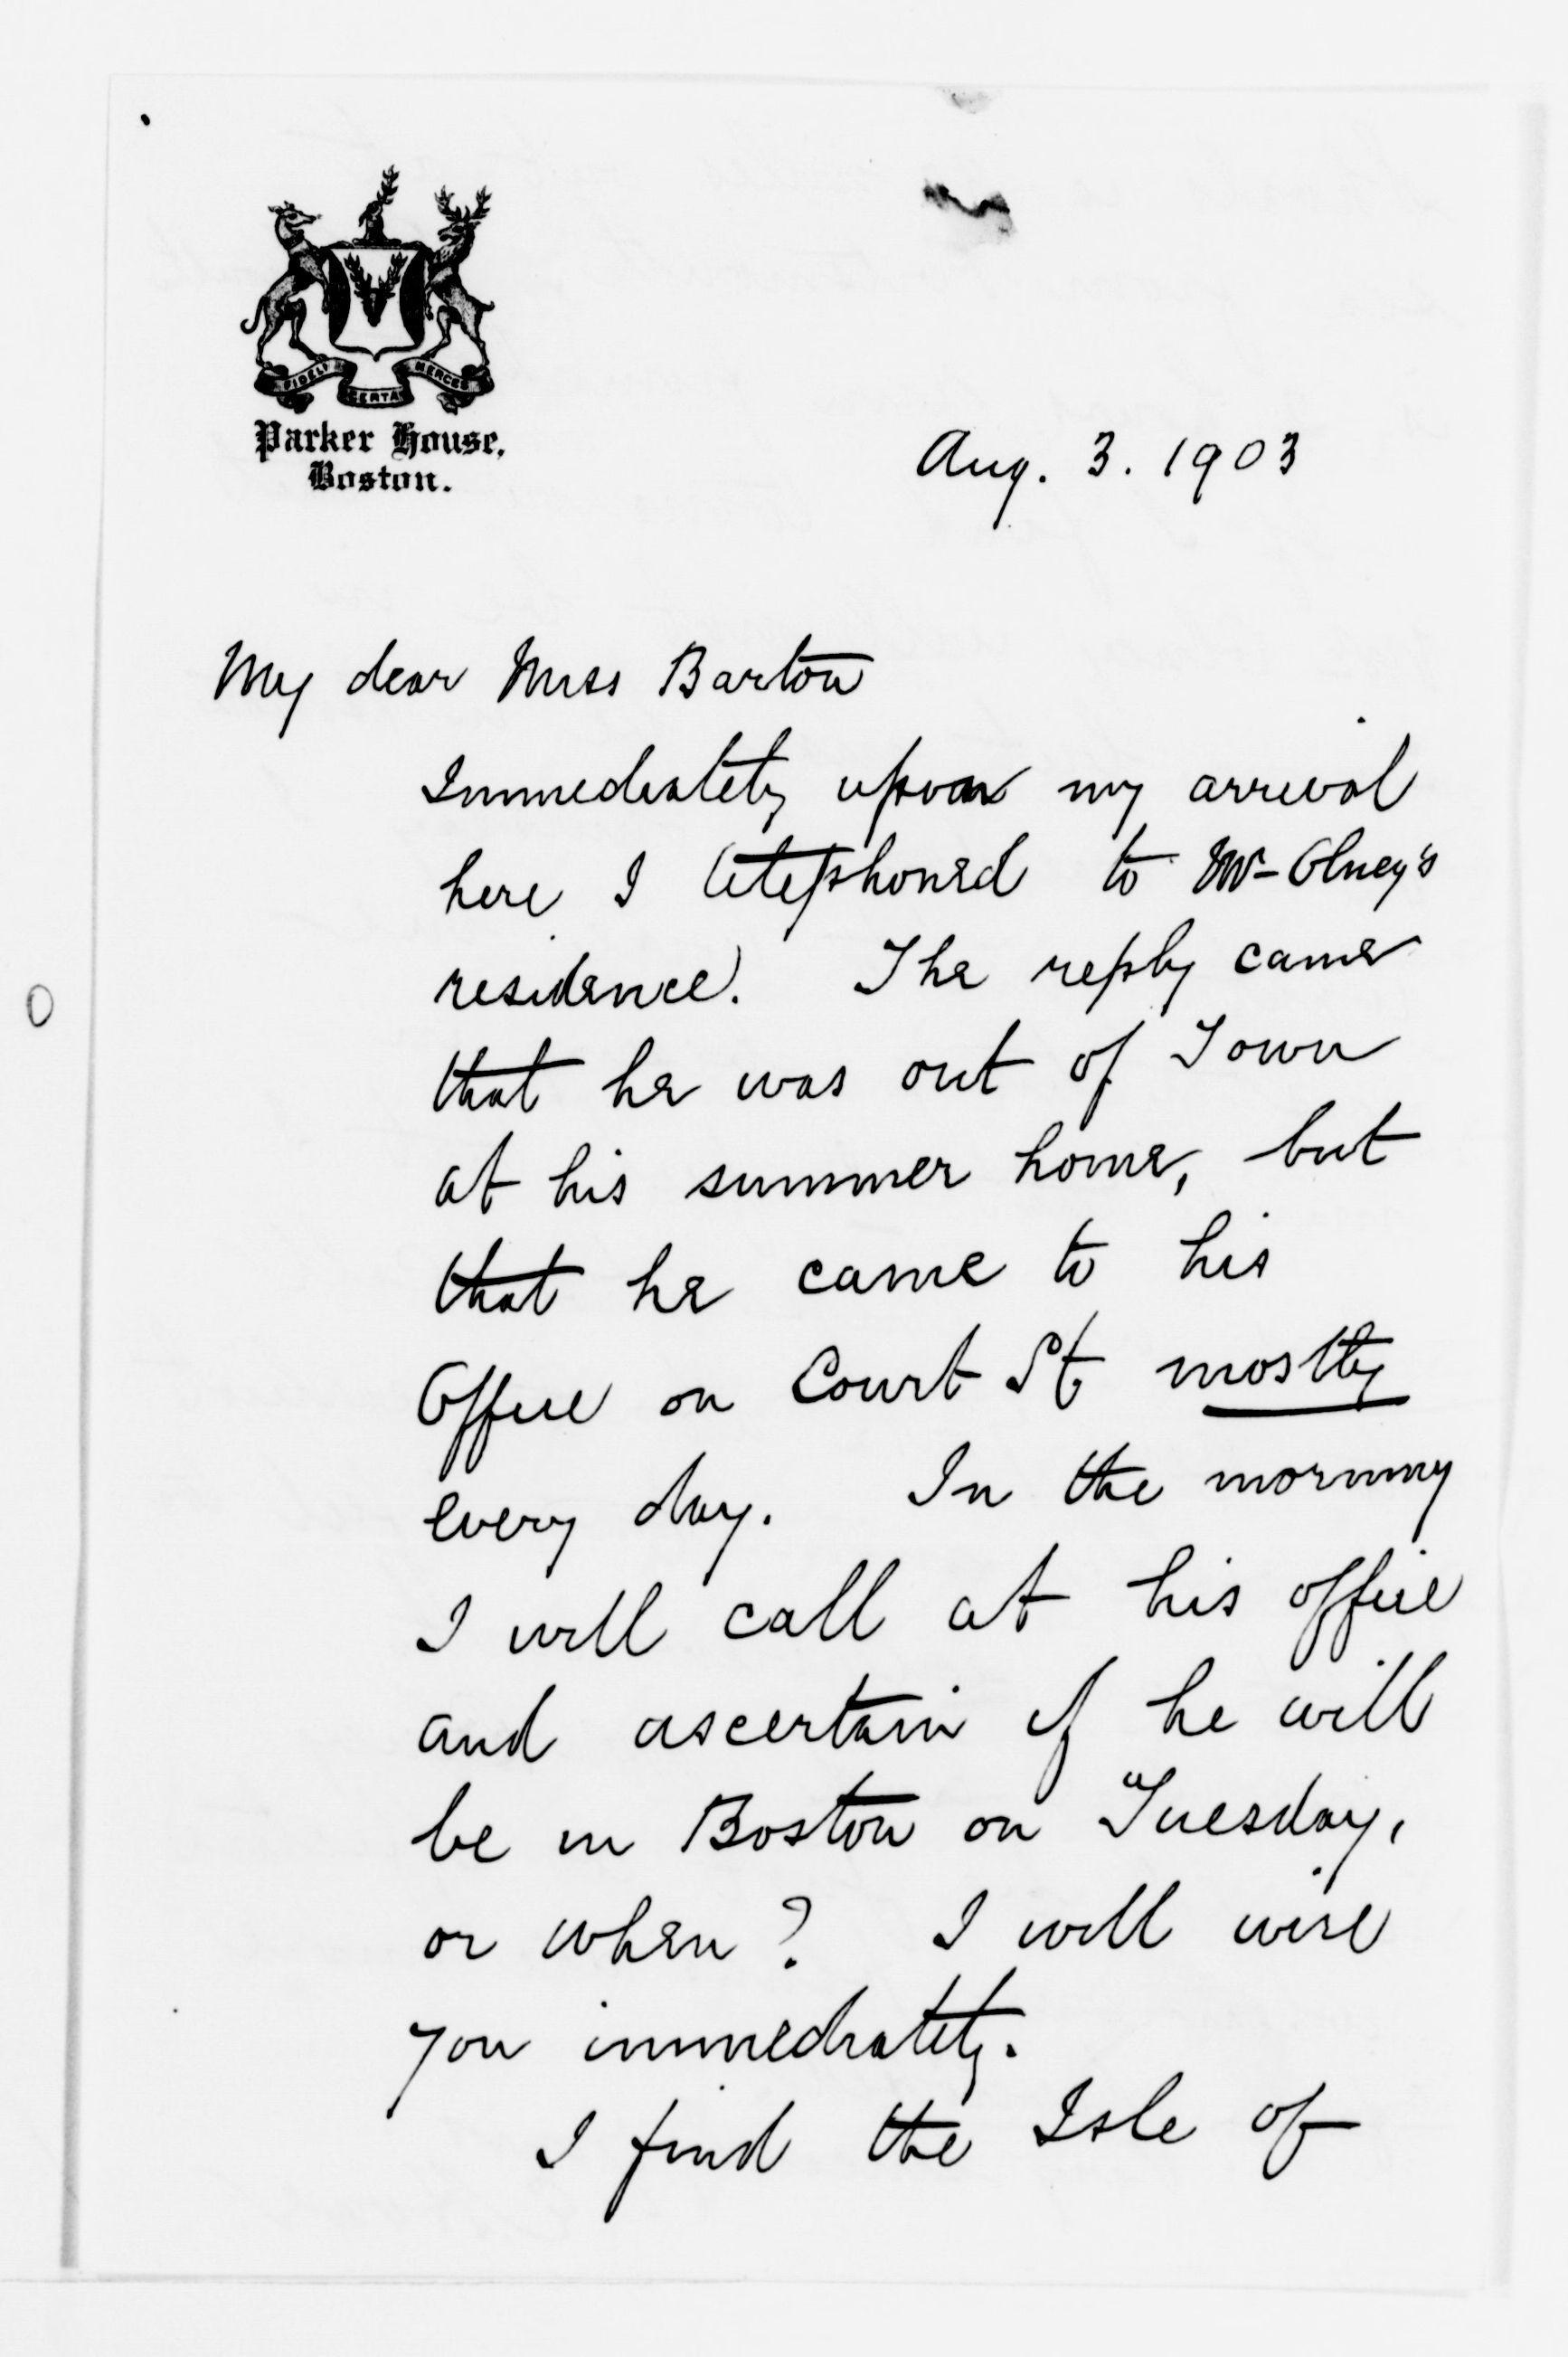 FIDELI CERTA MERCES
Parker House,
Boston.
Aug. 3. 1903
My dear Miss Barton
Immediately upon my arrival
here I telephoned to Mr Olney's
residence. The reply came
that he was out of Town
at his summer home, but
that he came to his
Office on Court St mostly
every day. In the morning
I will call at his office
and ascertain if he will
be in Boston on Tuesday,
or when? I will wire
you immediately.
I find the Isle of